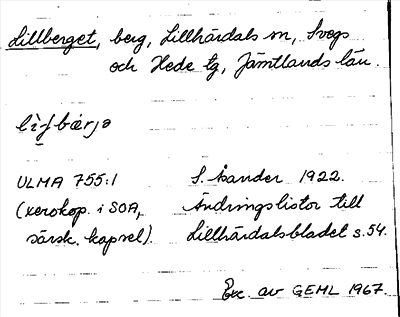 Lillberget, berg, Lillhärdals sn, Svegs
och Hede tg, Jämtlands län.
ULMA 755:1 S. Åander 1922.
(xerokop. i SOA, Ändringslistor till
särsk. kapsel). Lillhärdalsbladet s. 54.
Exc. av GEHL 1967.